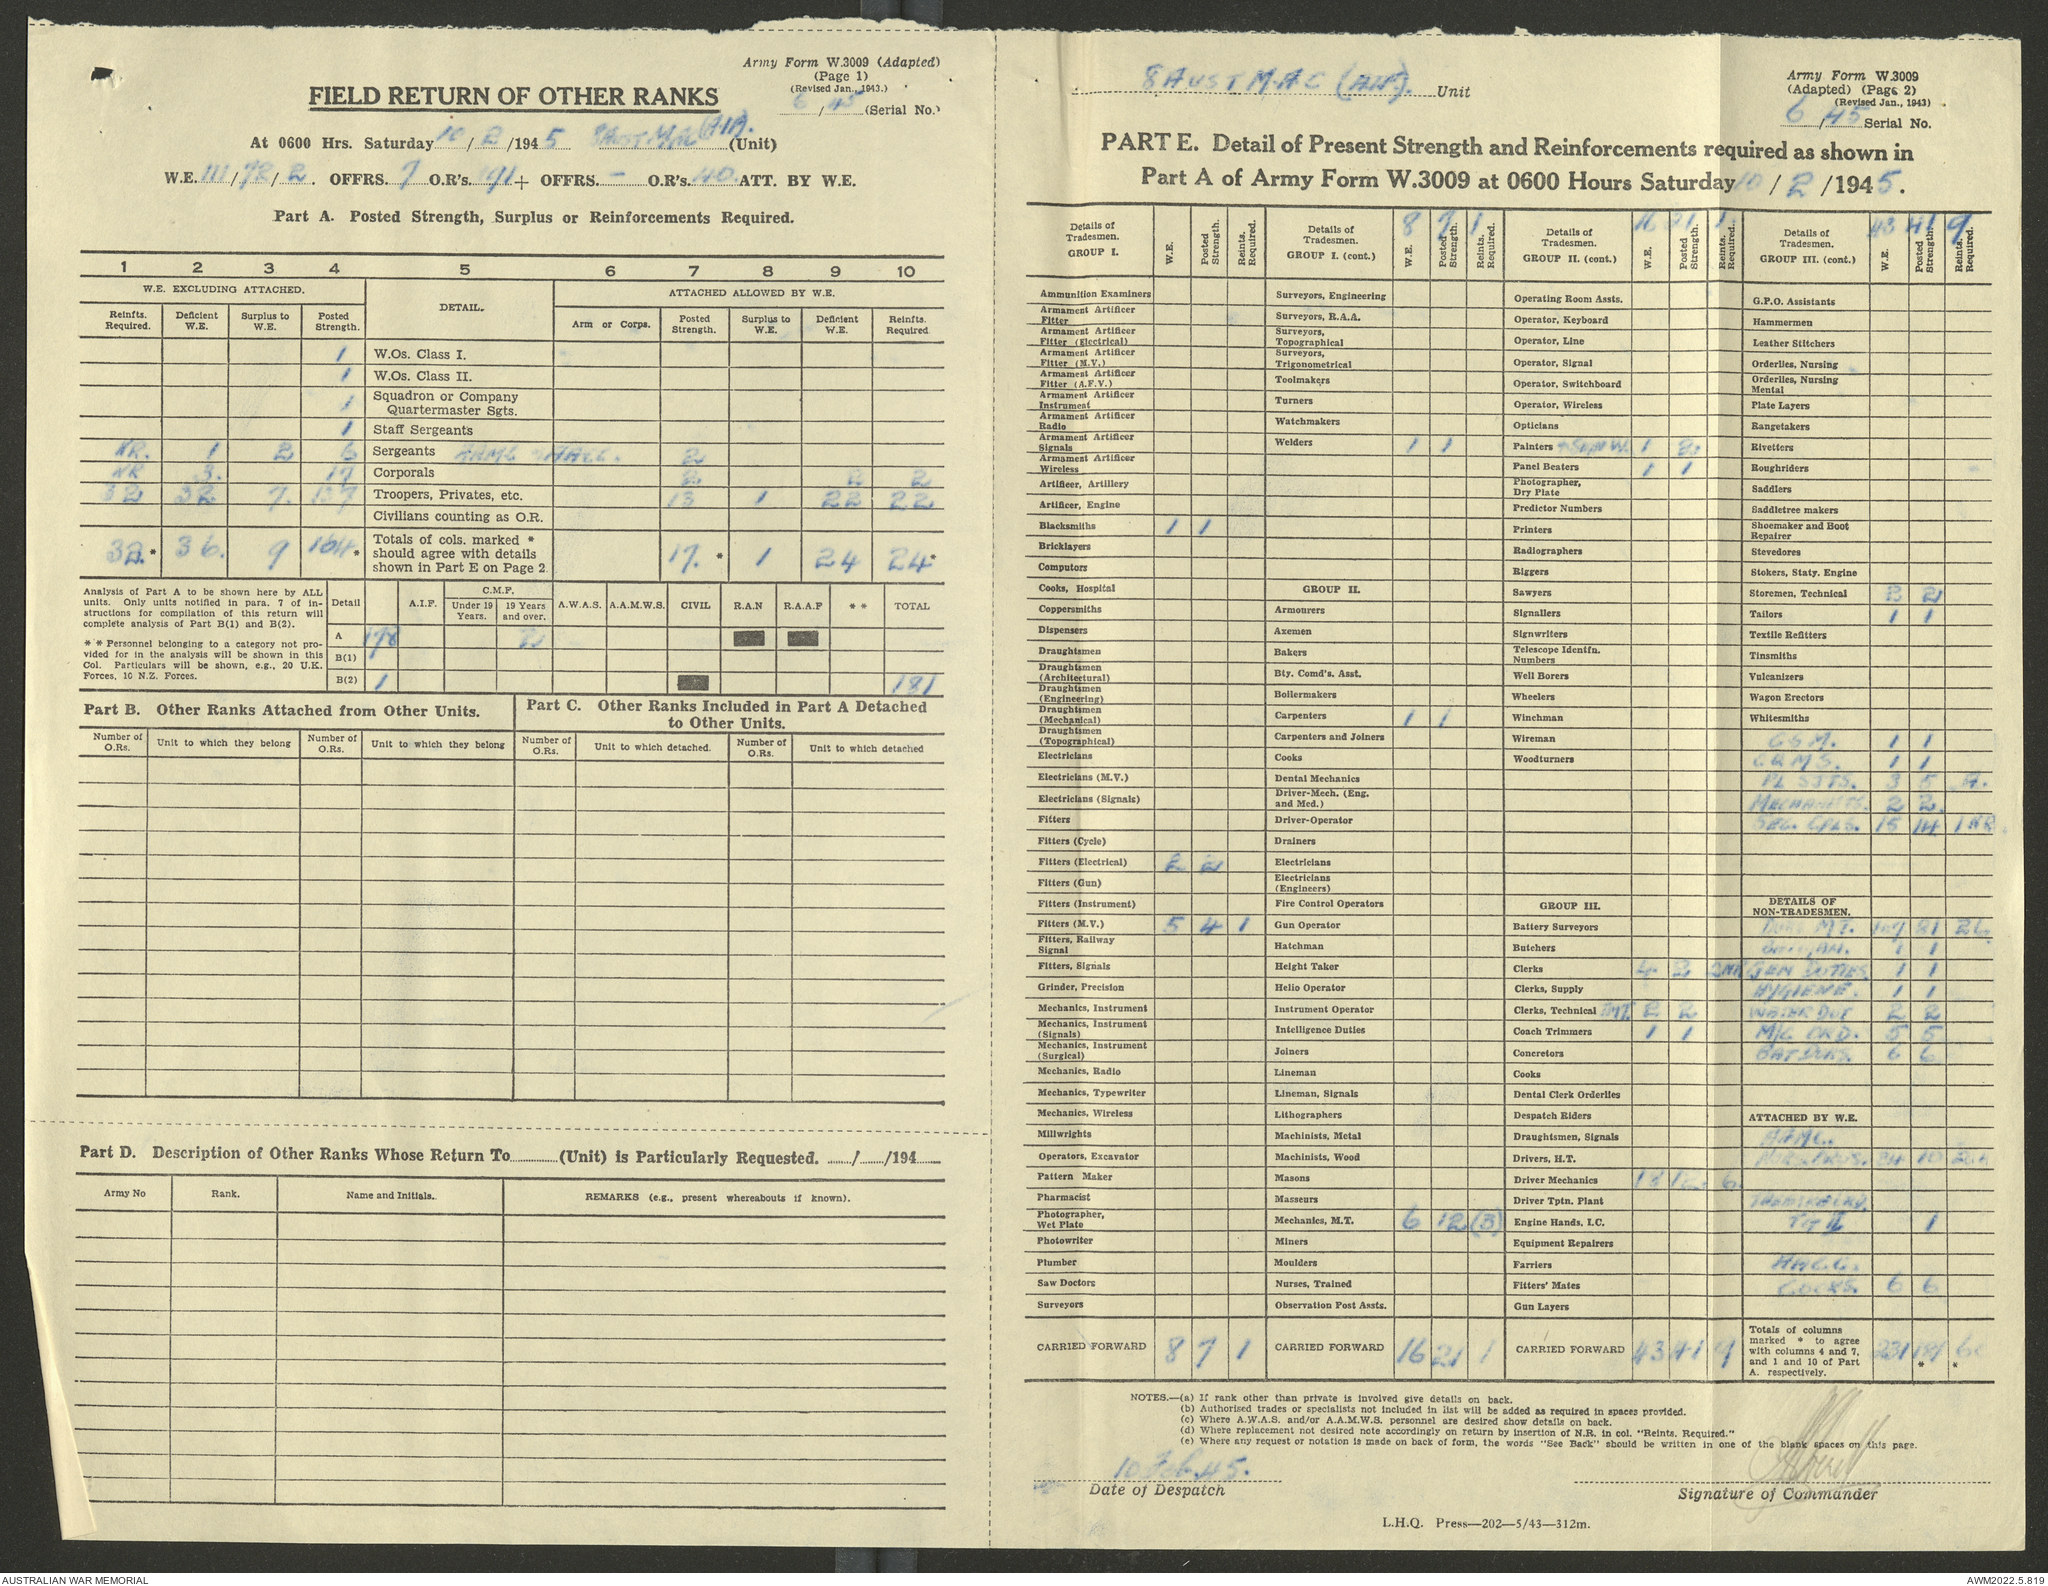 Army Form W.3009 (Adapted)
(Page 1)
(Revised Jan., 1943.)
6/45 (Serial No.)
FIELD RETURN OF OTHER RANKS
At 0600 Hrs. Saturday 10/2/1945 8 AUST MAC (AIF). (Unit)
W.E. III/72/2. OFFRS. 7 O.R's. 191 + OFFRS. - O.R's. 40 ATT. BY W.E.
Part A. Posted Strength, Surplus or Reinforcements Required.
1 2 3 4 5 6 7 8 9 10
W.E. EXCLUDING ATTACHED. DETAIL. ATTACHED ALLOWED BY W.E.
Reinfts. Required. Deficient W.E. Surplus to W.E. Posted Strength. Arm or Corps. Posted Strength. Surplus to W.E. Deficient W.E. Reinfts. Required
1 W.Os. Class I.
1 W.Os. Class II.
1 Squadron or Company Quartermaster Sgts.
1 Staff Sergeants
NR. 1 2 6 Sergeants AAMC 2
NR 3. 17 Corporals 2 2 2
32 32 7. 137 Troopers, Privates, etc. 13 1 22 22
Civilians counting as O.R.
32.* 36. 9 164* Totals of cols. marked * should agree with details shown in Part E on Page 2 17.* 1 24 24*
Analysis of Part A to be shown here by ALL units. Only units notified in para. 7 of instructions for compilation of this return will complete analysis of Part B(1) and B(2).
* * Personnel belonging to a category not provided for in the analysis will be shown in this Col. Particulars will be shown, e.g., 20 U.K. Forces, 10 N.Z. Forces.
Detail A.I.F. C.M.F. Under 19 Years. 19 Years and over. A.W.A.S. A.A.M.W.S. CIVIL R.A.N R.A.A.F * * TOTAL
A 178 2
B(1) 1
B(2) 1 181
Part B. Other Ranks Attached from Other Units.
Part C. Other Ranks Included in Part A Detached to Other Units.
Number of O.Rs. Unit to which they belong Number of O.Rs. Unit to which they belong Number of O.Rs. Unit to which detached. Number of O.Rs. Unit to which detached
Part D. Description of Other Ranks Whose Return To (Unit) is Particularly Requested. / /194
Army No Rank. Name and Initials. REMARKS (e.g., present whereabouts if known).
8 AUST M.A.C (AIF). Unit
Army Form W.3009
(Adapted) (Page 2)
(Revised Jan., 1943)
6/45 Serial No.
PART E. Detail of Present Strength and Reinforcements required as shown in
Part A of Army Form W.3009 at 0600 Hours Saturday 10/2/1945.
Details of Tradesmen. GROUP I. W.E. Posted Strength. Reints. Required.
Ammunition Examiners
Armament Artificer Fitter
Armament Artificer Fitter (Electrical)
Armament Artificer Fitter (M.V.)
Armament Artificer Fitter (A.F.V.)
Armament Artificer Instrument
Armament Artificer Radio
Armament Artificer Signals
Armament Artificer Wireless
Artificer, Artillery
Artificer, Engine
Blacksmiths 1 1
Bricklayers
Computors
Cooks, Hospital
Coppersmiths
Dispensers
Draughtsmen
Draughtsmen (Architectural)
Draughtsmen (Engineering)
Draughtsmen (Mechanical)
Draughtsmen (Topographical)
Electricians
Electricians (M.V.)
Electricians (Signals)
Fitters
Fitters (Cycle)
Fitters (Electrical) 2 2
Fitters (Gun)
Fitters (Instrument)
Fitters (M.V.) 5 4 1
Fitters, Railway Signal
Fitters, Signals
Grinder, Precision
Mechanics, Instrument
Mechanics, Instrument (Signals)
Mechanics, Instrument (Surgical)
Mechanics, Radio
Mechanics, Typewriter
Mechanics, Wireless
Millwrights
Operators, Excavator
Pattern Maker
Pharmacist
Photographer, Wet Plate
Photowriter
Plumber
Saw Doctors
Surveyors
CARRIED FORWARD 8 7 1
Details of Tradesmen. GROUP I. (cont.) W.E. Posted Strength. Reints. Required.
8 7 1
Surveyors, Engineering
Surveyors, R.A.A.
Surveyors, Topographical
Surveyors, Trigonometrical
Toolmakers
Turners
Watchmakers
Welders 1 1
GROUP II.
Armourers
Axemen
Bakers
Bty. Comd's. Asst.
Boilermakers
Carpenters 1 1
Carpenters and Joiners
Cooks
Dental Mechanics
Driver-Mech. (Eng. and Med.)
Driver-Operator
Drainers
Electricians
Electricians (Engineers)
Fire Control Operators
Gun Operator
Hatchman
Height Taker
Helio Operator
Instrument Operator
Intelligence Duties
Joiners
Lineman
Lineman, Signals
Lithographers
Machinists, Metal
Machinists, Wood
Masons
Masseurs
Mechanics, M.T. 6 12 (3)
Miners
Moulders
Nurses, Trained
Observation Post Assts.
CARRIED FORWARD 16 21 1
Details of Tradesmen. GROUP II. (cont.) W.E. Posted Strength. Reints. Required.
16 21 1
Operating Room Assts.
Operator, Keyboard
Operator, Line
Operator, Signal
Operator, Switchboard
Operator, Wireless
Opticians
Painters 1 2
Panel Beaters 1 1
Photographer, Dry Plate
Predictor Numbers
Printers
Radiographers
Riggers
Sawyers
Signallers
Signwriters
Telescope Identfn. Numbers
Well Borers
Wheelers
Winchman
Wireman
Woodturners
GROUP III.
Battery Surveyors
Butchers
Clerks 4 2 2NR
Clerks, Supply
Clerks, Technical 2 2
Coach Trimmers 1 1
Concretors
Cooks
Dental Clerk Orderlies
Despatch Riders
Draughtsmen, Signals
Drivers, H.T.
Driver Mechanics 18 12 6
Driver Tptn. Plant
Engine Hands, I.C.
Equipment Repairers
Farriers
Fitters' Mates
Gun Layers
CARRIED FORWARD 43 41 9
Details of Tradesmen. GROUP III. (cont.) W.E. Posted Strength. Reints. Required.
43 41 9
G.P.O. Assistants
Hammermen
Leather Stitchers
Orderlies, Nursing
Orderlies, Nursing Mental
Plate Layers
Rangetakers
Rivetters
Roughriders
Saddlers
Saddletree makers
Shoemaker and Boot Repairer
Stevedores
Stokers, Staty. Engine
Storemen, Technical 2 2
Tailors 1 1
Textile Refitters
Tinsmiths
Vulcanizers
Wagon Erectors
Whitesmiths
C.S.M. 1 1
C.Q.M.S. 1 1
PL SJTS. 3 5
MECHANISTS. 2 2
SEC. CPLS. 15 14 1 NR.
DETAILS OF NON-TRADESMEN.
DVRS MT. 107 81 26
1 1
GEN DUTIES 1 1
HYGIENE. 1 1
WATER DUT 2 2
M/C ORD. 5 5
BATDVRS 6 6
ATTACHED BY W.E.
AAMC.
24 10 24
1
AACC.
COOKS. 6 6
Totals of columns marked * to agree with columns 4 and 7, and 1 and 10 of Part A. respectively. 231 181* *
NOTES.—(a) If rank other than private is involved give details on back.
(b) Authorised trades or specialists not included in list will be added as required in spaces provided.
(c) Where A.W.A.S. and/or A.A.M.W.S. personnel are desired show details on back.
(d) Where replacement not desired note accordingly on return by insertion of N.R. in col. "Reints. Required."
(e) Where any request or notation is made on back of form, the words "See Back" should be written in one of the blank spaces on this page.
10 Feb 45.
Date of Despatch
Signature of Commander
L.H.Q. Press—202—5/43—312m.
AUSTRALIAN WAR MEMORIAL
AWM2022.5.819